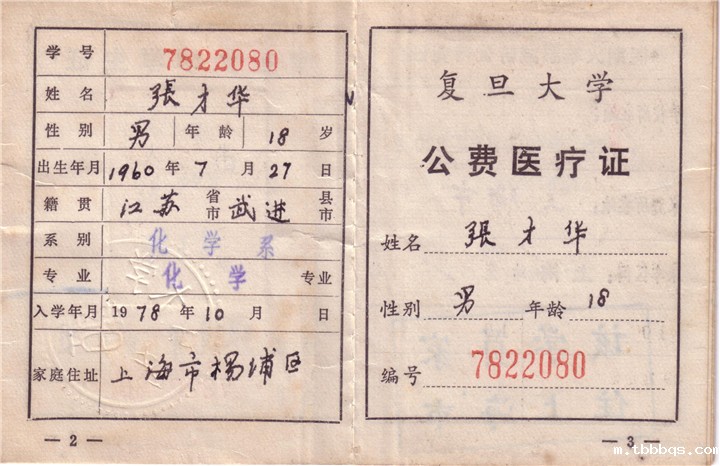 学号 7822080
姓名 張才华
性别 男 年龄 18 岁
出生年月 1960 年 7 月 27 日
籍贯 江苏 省市 武进 县市
系别 化学系
专业 化学 专业
入学年月 1978 年 10 月 日
家庭住址 上海市杨浦区
— 2 —
复旦大学
公费医疗证
姓名 張才华
性别 男 年龄 18
编号 7822080
— 3 —
m.tbbbqs.com